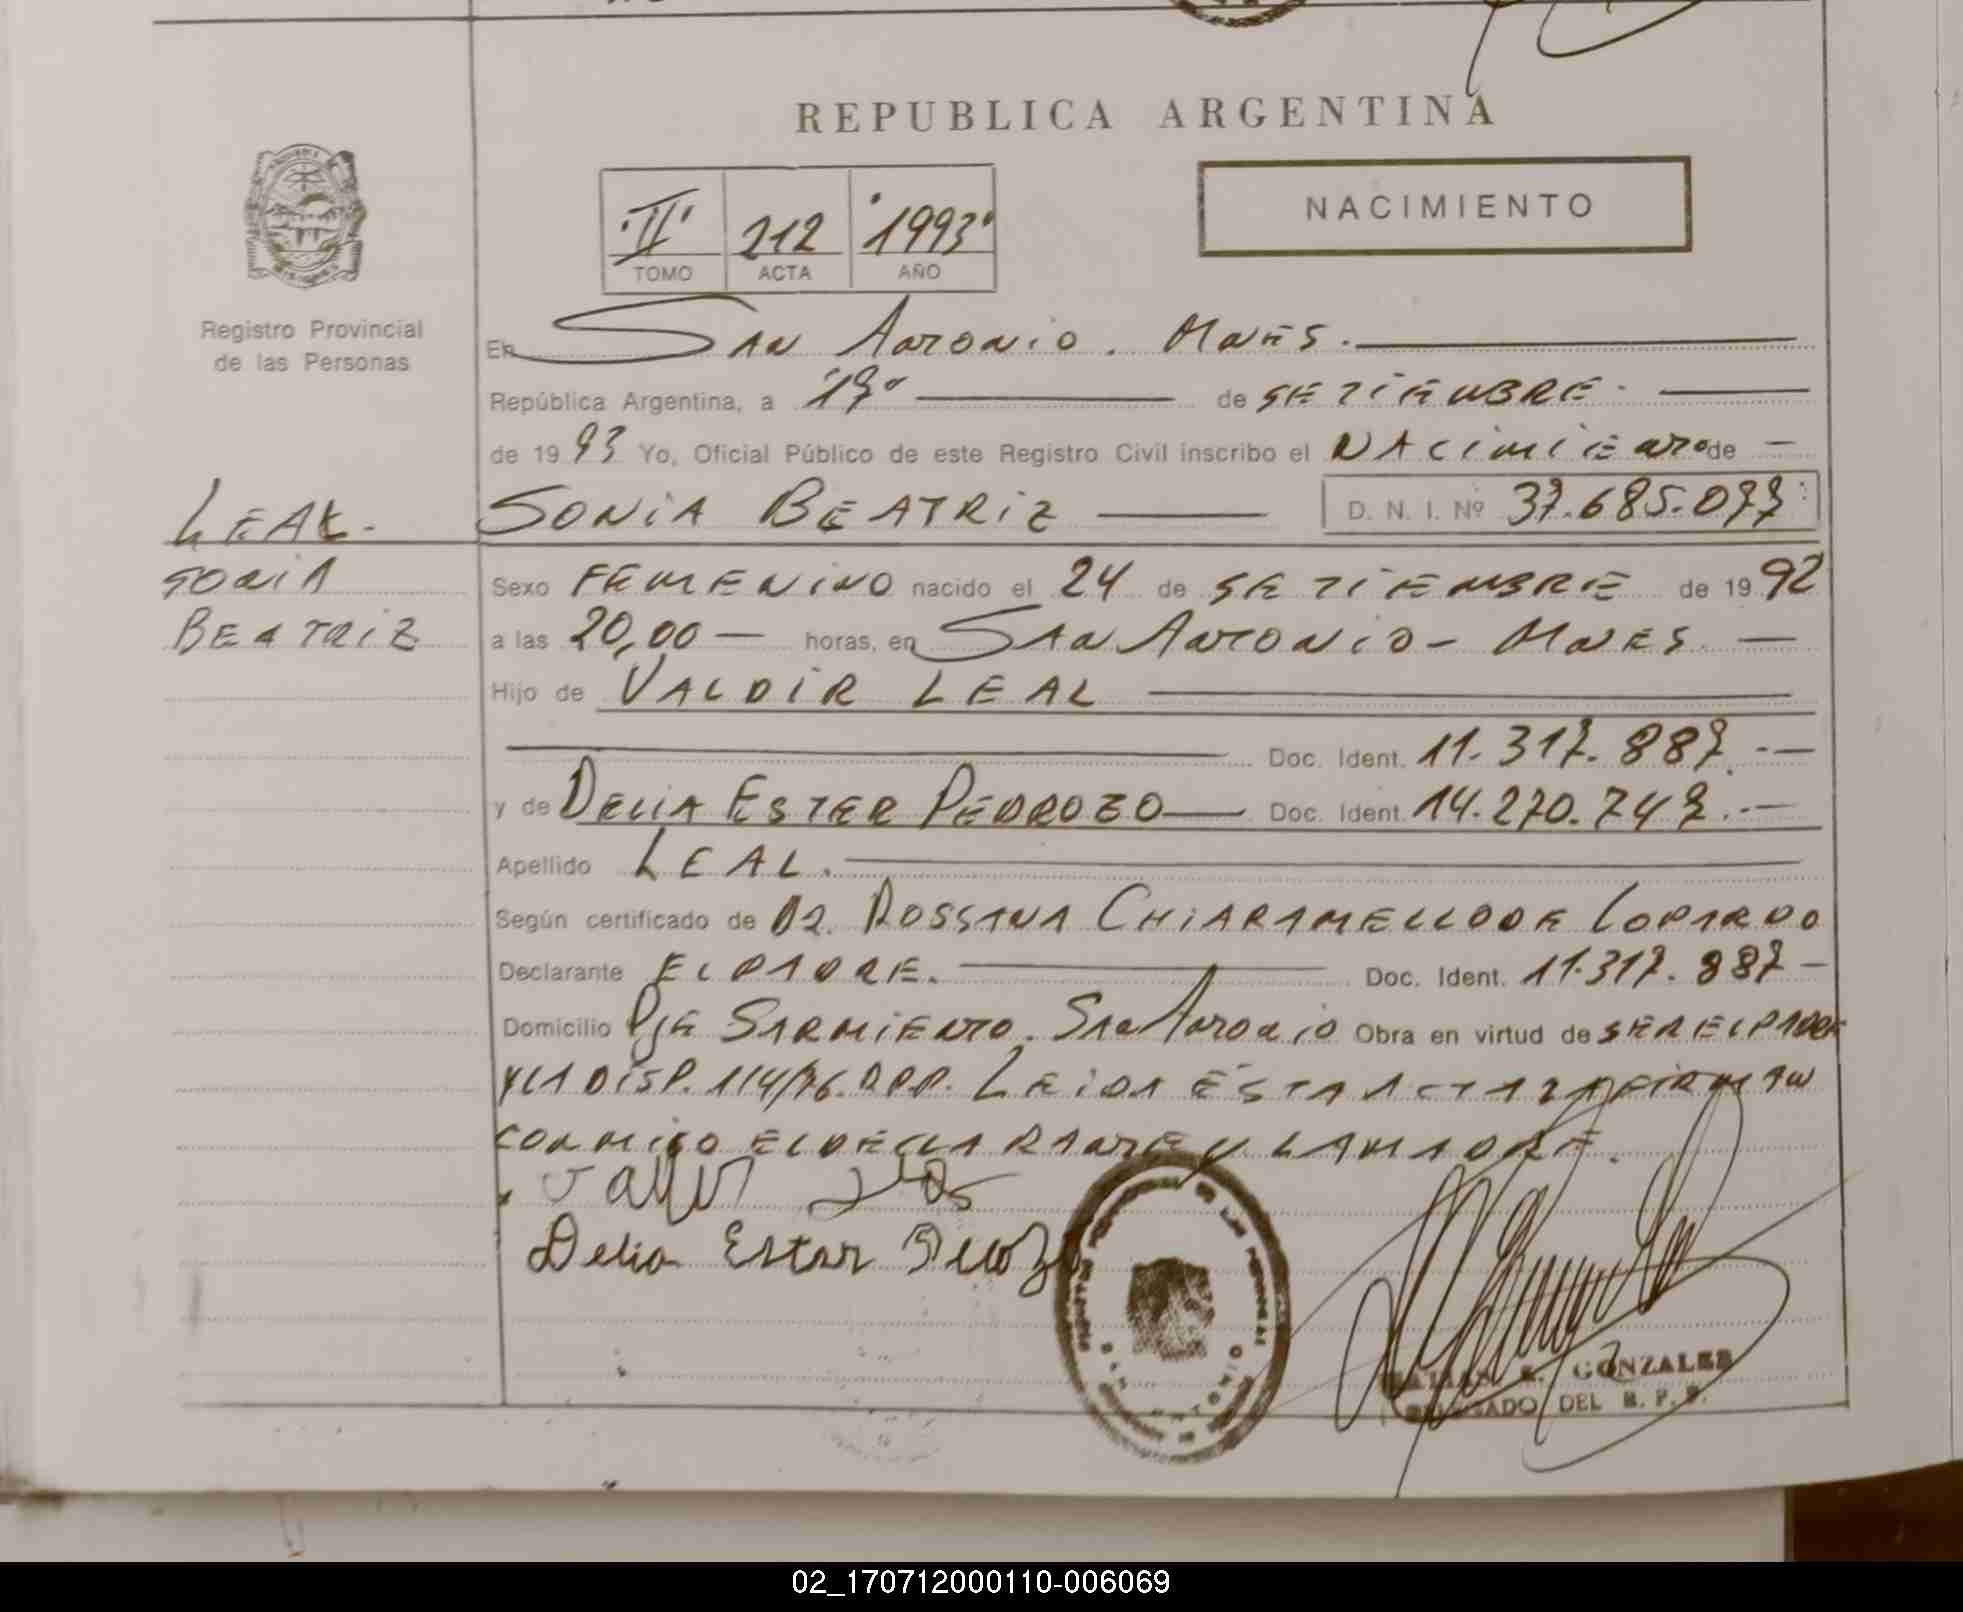 REPUBLICA ARGENTINA
NACIMIENTO
II 212 1993
TOMO ACTA AÑO
Registro Provincial
de las Personas
En San Antonio. Mnes.
República Argentina, a 17 de SETIEMBRE
de 1993 Yo, Oficial Público de este Registro Civil inscribo el NACIMIENTO de
SONIA BEATRIZ D. N. I. Nº 37.685.077
LEAL.
SONIA
BEATRIZ
Sexo FEMENINO nacido el 24 de SETIEMBRE de 1992
a las 20,00 horas, en SAN ANTONIO - MNES.
Hijo de VALDIR LEAL
Doc. Ident. 11.317.887.
y de DELIA ESTER PEDROZO Doc. Ident. 14.270.747.
Apellido LEAL.
Según certificado de DRA. ROSSANA CHIARAMELLO DE LOPARDO
Declarante EL PADRE. Doc. Ident. 11.317.887
Domicilio Pje SARMIENTO. San Antonio Obra en virtud de SER EL PADRE
Y LA DISP. 114/76. D.P.P. LEIDA ESTA ACTA LA FIRMAN
CONMIGO EL DECLARANTE Y LA MADRE.
Delia Ester
GONZALES
DELEGADO DEL R. P. P.
02_170712000110-006069